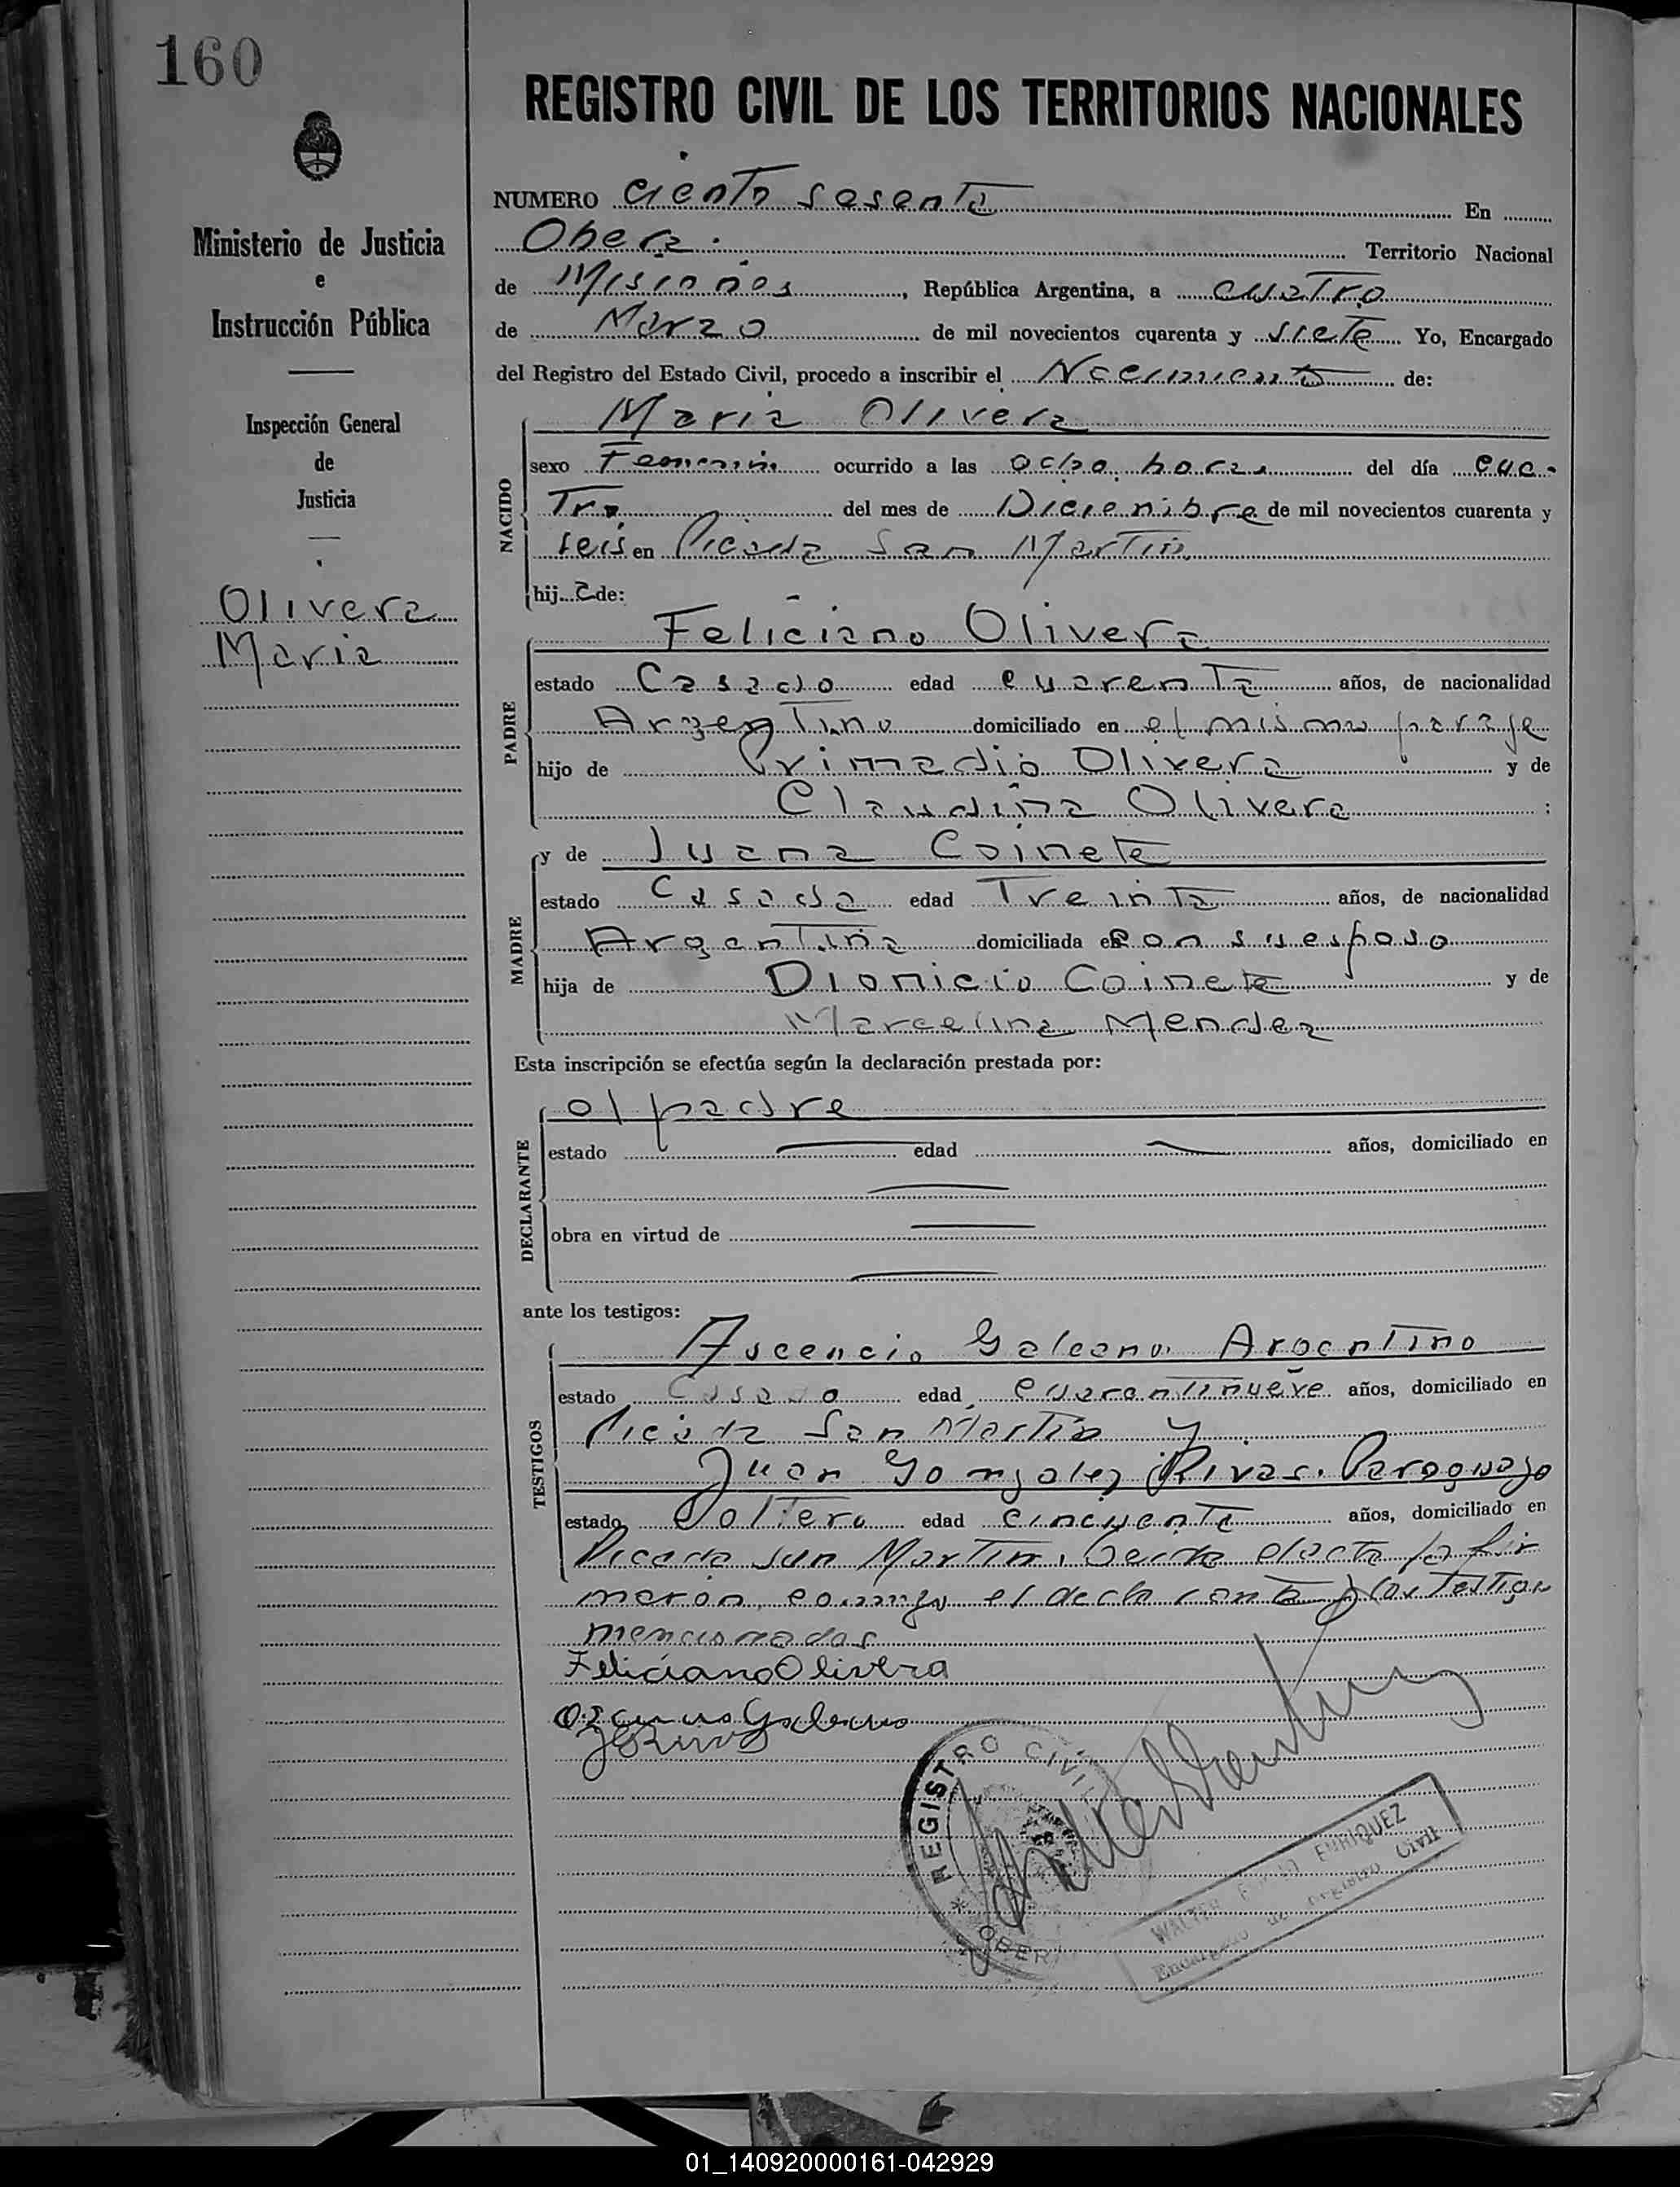 160
REGISTRO CIVIL DE LOS TERRITORIOS NACIONALES
Ministerio de Justicia
e
Instrucción Pública
Inspección General
de
Justicia
Olivera
Maria
NUMERO ciento sesenta En
Obera. Territorio Nacional
de Misiones, República Argentina, a cuatro
de Marzo de mil novecientos cuarenta y siete Yo, Encargado
del Registro del Estado Civil, procedo a inscribir el Nacimiento de:
NACIDO
Maria Olivera
sexo Femenino ocurrido a las ocho horas del día cua-
tro del mes de Diciembre de mil novecientos cuarenta y
seis en Picada San Martin
hija de:
PADRE
Feliciano Olivera
estado Casado edad cuarenta años, de nacionalidad
Argentino domiciliado en el mismo paraje
hijo de Primadio Olivera y de
Claudina Olivera :
MADRE
y de Juana Coinete
estado Casada edad Treinta años, de nacionalidad
Argentina domiciliada en con su esposo
hija de Dionicio Coinete y de
Marcelina Mendez
Esta inscripción se efectúa según la declaración prestada por:
DECLARANTE
el padre
estado edad años, domiciliado en
obra en virtud de
ante los testigos:
TESTIGOS
Ascencio Galeano Argentino
estado Casado edad cuarentinueve años, domiciliado en
Picada San Martin y
Juan Gonzalez Rivas. Paraguayo
estado Soltero edad cincuenta años, domiciliado en
Picada San Martin. Leida el acta la fir
maron conmigo el declarante y los testigos
mencionados
Feliciano Olivera
Galeano
REGISTRO CIVIL
OBERA
WALTER ENRIQUEZ
Encargado de Registro Civil
01_140920000161-042929